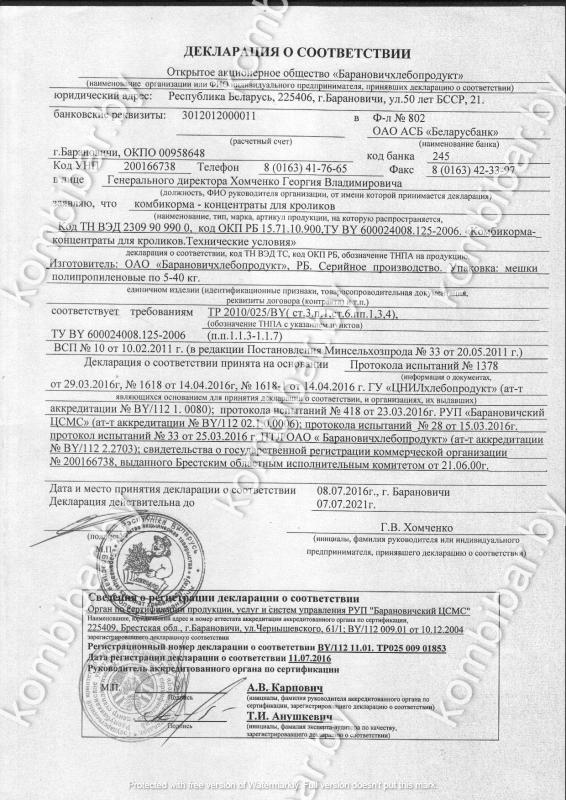 ДЕКЛАРАЦИЯ О СООТВЕТСТВИИ
Открытое акционерное общество «Барановичхлебопродукт»
(наименование организации или ФИО индивидуального предпринимателя, принявших декларацию о соответствии)
юридический адрес: Республика Беларусь, 225406, г.Барановичи, ул.50 лет БССР, 21.
банковские реквизиты: 3012012000011 в Ф-л № 802
ОАО АСБ «Беларусбанк»
(расчетный счет) (наименование банка)
г.Барановичи, ОКПО 00958648 код банка 245
Код УНП 200166738 Телефон 8 (0163) 41-76-65 Факс 8 (0163) 42-33-97
в лице Генерального директора Хомченко Георгия Владимировича
(должность, ФИО руководителя организации, от имени которой принимается декларация)
заявляю, что комбикорма - концентраты для кроликов
(наименование, тип, марка, артикул продукции, на которую распространяется,
Код ТН ВЭД 2309 90 990 0, код ОКП РБ 15.71.10.900,ТУ BY 600024008.125-2006. «Комбикорма-
концентраты для кроликов.Технические условия»
декларация о соответствии, код ТН ВЭД ТС, код ОКП РБ, обозначение ТНПА на продукцию,
Изготовитель: ОАО «Барановичхлебопродукт», РБ. Серийное производство. Упаковка: мешки
полипропиленовые по 5-40 кг.
единичном изделии (идентификационные признаки, товаросопроводительная документация,
реквизиты договора (контракта) и т.п.)
соответствует требованиям ТР 2010/025/BY( ст.3,п.1,ст.6,пп.1,3,4),
(обозначение ТНПА с указанием пунктов)
ТУ BY 600024008.125-2006 (п.п.1.1.3-1.1.7)
ВСП № 10 от 10.02.2011 г. (в редакции Постановления Минсельхозпрода № 33 от 20.05.2011 г.)
Декларация о соответствии принята на основании Протокола испытаний № 1378
(информация о документах,
от 29.03.2016г, № 1618 от 14.04.2016г, № 1618- от 14.04.2016 г. ГУ «ЦНИЛхлебопродукт» (ат-т
являющихся основанием для принятия декларации о соответствии, и организациях, их выдавших)
аккредитации № BY/112 1. 0080); протокола испытаний № 418 от 23.03.2016г. РУП «Барановичский
ЦСМС» (ат-т аккредитации № BY/112 02.1.0.0006); протокола испытаний № 28 от 15.03.2016г.
протокол испытаний № 33 от 25.03.2016 г. ПТЛ ОАО « Барановичхлебопродукт» (ат-т аккредитации
№ BY/112 2.2703); свидетельства о государственной регистрации коммерческой организации
№ 200166738, выданного Брестским областным исполнительным комитетом от 21.06.00г.
Дата и место принятия декларации о соответствии 08.07.2016г., г. Барановичи
Декларация действительна до 07.07.2021г.
Г.В. Хомченко
М.П. (инициалы, фамилия руководителя или индивидуального
предпринимателя, принявшего декларацию о соответствия)
Сведения о регистрации декларации о соответствии
Орган по сертификации продукции, услуг и систем управления РУП "Барановичский ЦСМС"
Наименование, юридический адрес и номер аттестата аккредитации аккредитованного органа по сертификации,
225409, Брестская обл., г.Барановичи, ул.Чернышевского, 61/1; BY/112 009.01 от 10.12.2004
зарегистрировавшего декларацию о соответствии
Регистрационный номер декларации о соответствии BY/112 11.01. ТР025 009 01853
Дата регистрации декларации о соответствии 11.07.2016
Руководитель аккредитованного органа по сертификации
М.П. А.В. Карпович
Подпись (инициалы, фамилия руководителя аккредитованного органа по
сертификации, зарегистрировавшего декларацию о соответствии)
Т.И. Анушкевич
Подпись (инициалы, фамилия эксперта-аудитора по качеству,
зарегистрировавшего декларацию о соответствии)
kombibar.by
Protected with free version of Watermarkly. Full version doesn't put this mark.